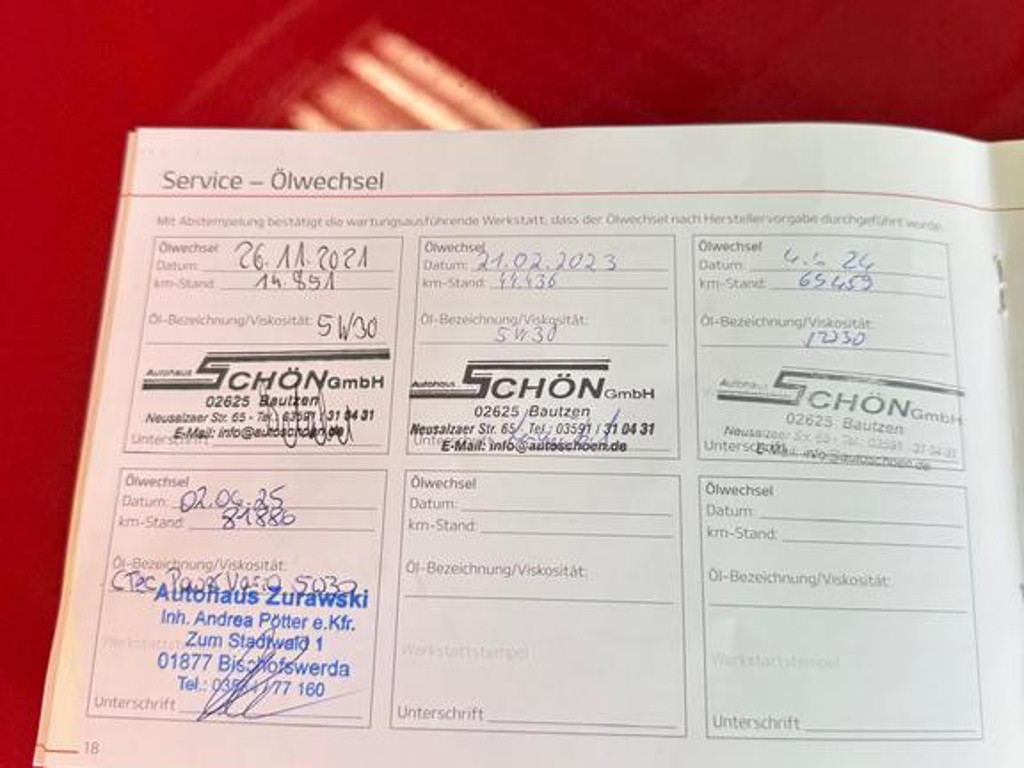 Service – Ölwechsel
Mit Abstempelung bestätigt die wartungsausführende Werkstatt, dass der Ölwechsel nach Herstellervorgabe durchgeführt wurde.
Ölwechsel
Datum: 26.11.2021
km-Stand: 14.851
Öl-Bezeichnung/Viskosität: 5W30
Autohaus SCHÖN GmbH
02625 Bautzen
Neusalzaer Str. 65 - Tel.: 03591 / 31 04 31
E-Mail: info@autoschoen.de
Unterschrift
Ölwechsel
Datum: 21.02.2023
km-Stand: 44.436
Öl-Bezeichnung/Viskosität:
5W30
Autohaus SCHÖN GmbH
02625 Bautzen
Neusalzaer Str. 65 - Tel.: 03591 / 31 04 31
E-Mail: info@autoschoen.de
Unterschrift
Ölwechsel
Datum: 24
km-Stand: 65459
Öl-Bezeichnung/Viskosität:
Autohaus SCHÖN GmbH
02625 Bautzen
Neusalzaer Str. 65 - Tel.: 03591 / 31 04 31
E-Mail: info@autoschoen.de
Unterschrift
Ölwechsel
Datum: 02.04.25
km-Stand: 81880
Öl-Bezeichnung/Viskosität:
CTec 5W30
Autohaus Zurawski
Inh. Andrea Pötter e.Kfr.
Zum Stadtwald 1
01877 Bischofswerda
Tel.: 77 160
Unterschrift
Ölwechsel
Datum:
km-Stand:
Öl-Bezeichnung/Viskosität:
Werkstattstempel
Unterschrift
Ölwechsel
Datum:
km-Stand:
Öl-Bezeichnung/Viskosität:
Werkstattstempel
Unterschrift
18